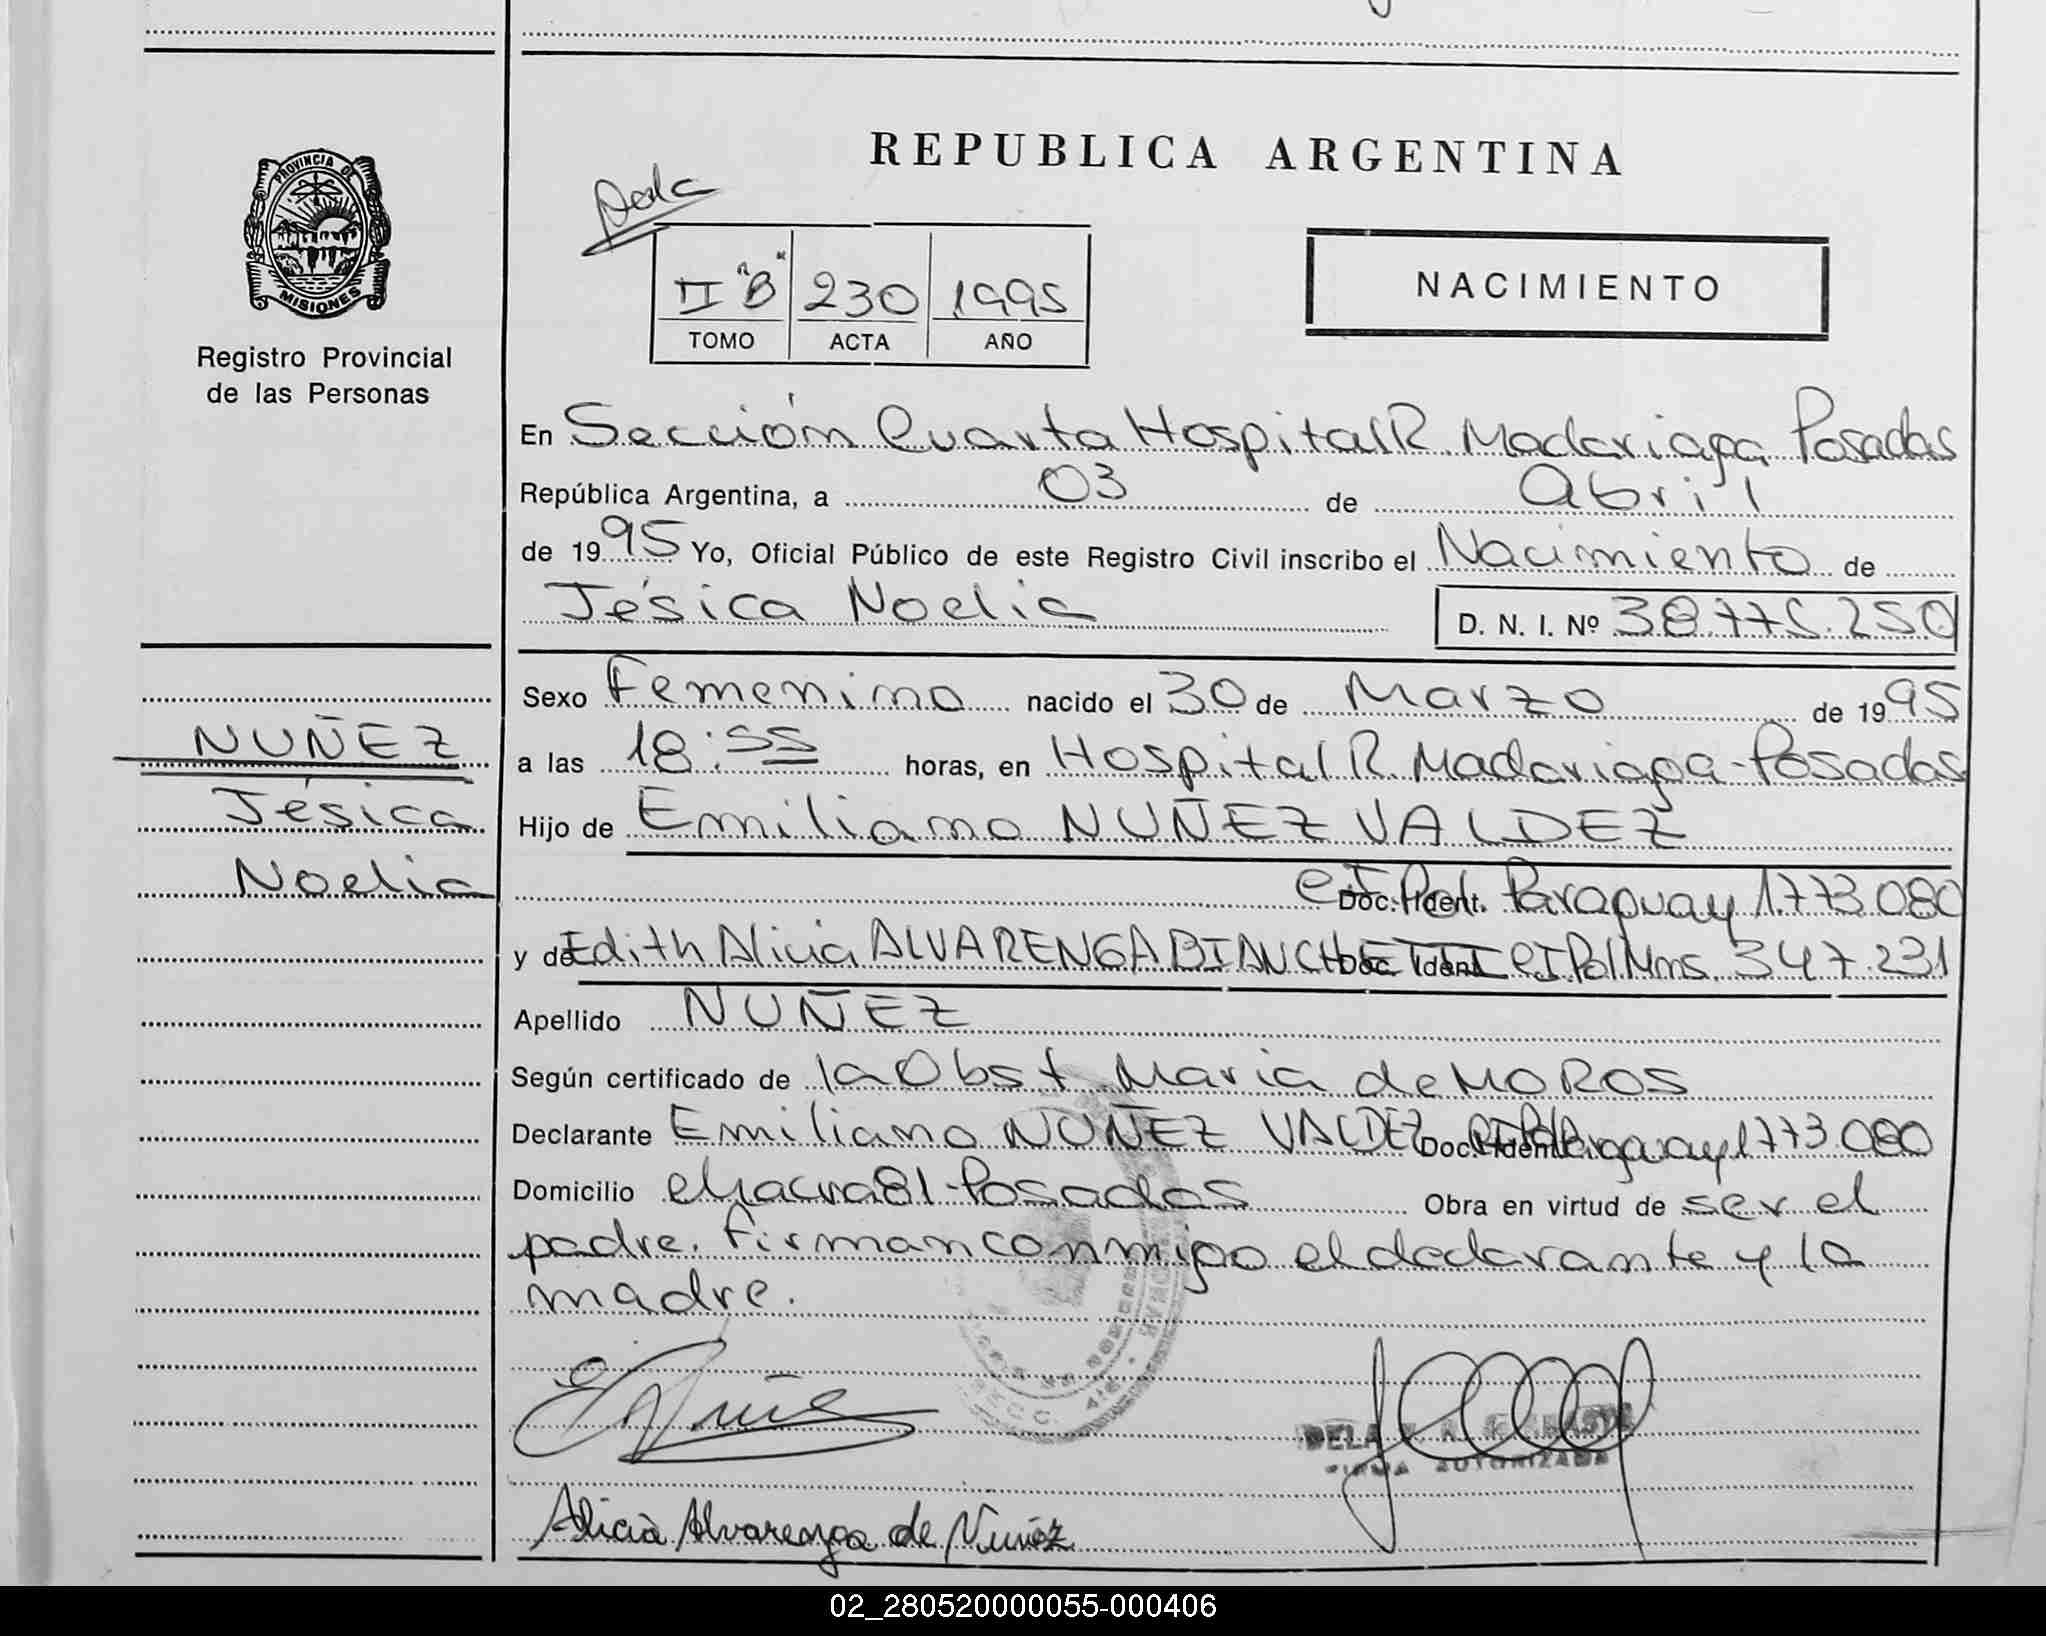 REPUBLICA ARGENTINA
PROVINCIA DE
MISIONES
Registro Provincial
de las Personas
II "B" 230 1995
TOMO ACTA AÑO
NACIMIENTO
En Sección Cuarta Hospital R. Madariaga Posadas
República Argentina, a 03 de Abril
de 1995 Yo, Oficial Público de este Registro Civil inscribo el Nacimiento de
Jésica Noelia D. N. I. Nº 38.775.250
NUÑEZ
Jésica
Noelia
Sexo Femenino nacido el 30 de Marzo de 1995
a las 18:55 horas, en Hospital R. Madariaga - Posadas
Hijo de Emiliano NUÑEZ VALDEZ
Doc. Ident. CI Pol. Paraguay 1.773.080
y de Edith Alicia ALVARENGA BIANCHETTI Doc. Ident. CI Pol Mns. 347.231
Apellido NUÑEZ
Según certificado de la Obst María de MOROS
Declarante Emiliano NUÑEZ VALDEZ Doc. Ident. CI Pol Paraguay 1773.080
Domicilio Chacra 81 - Posadas Obra en virtud de ser el
padre. Firman conmigo el declarante y la
madre.
FIRMA AUTORIZADA
Alicia Alvarenga de Nuñez
02_280520000055-000406